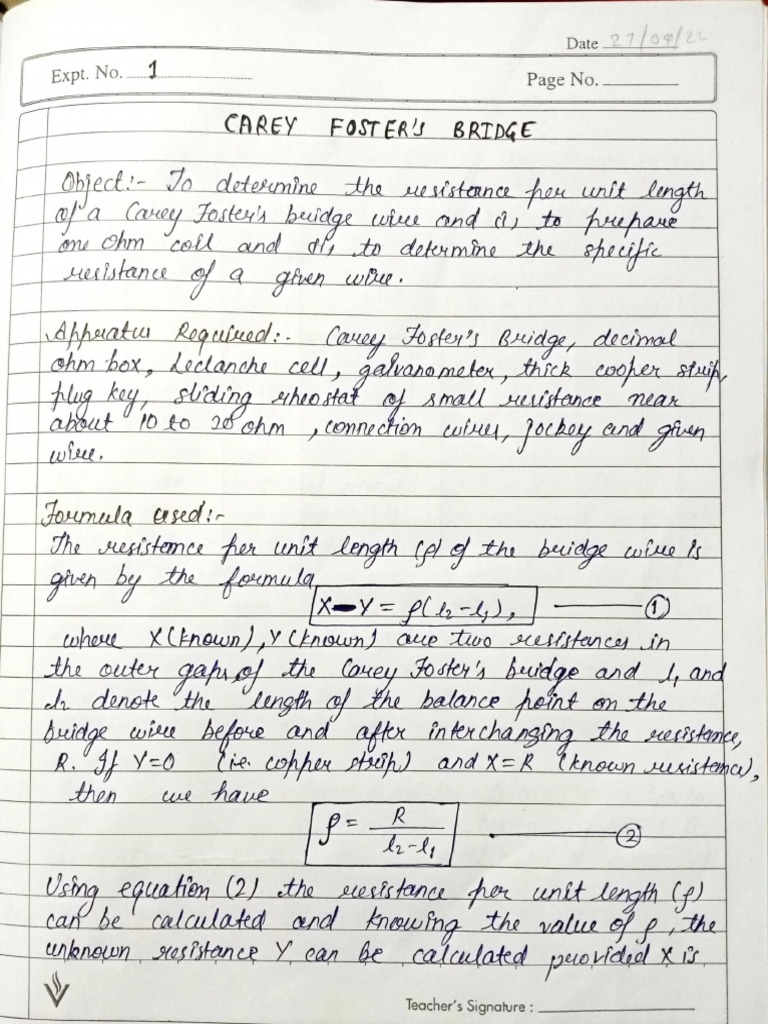 Date 27/04/22
Expt. No. 1
Page No.
CAREY FOSTER'S BRIDGE
Object:- To determine the resistance per unit length
of a Carey Foster's bridge wire and (i), to prepare
one ohm coil and (ii), to determine the specific
resistance of a given wire.
Apparatus Required:- Carey Foster's Bridge, decimal
ohm box, Leclanche cell, galvanometer, thick cooper strip,
plug key, sliding rheostat of small resistance near
about 10 to 20 ohm, connection wires, jockey and given
wire.
Formula used:-
The resistance per unit length (ρ) of the bridge wire is
given by the formula
X-Y = ρ(l₂-l₁), ①
where X(known), Y(known) are two resistances in
the outer gaps, of the Carey Foster's bridge and l₁ and
l₂ denote the length of the balance point on the
bridge wire before and after interchanging the resistance,
R. If Y=0 (i.e. copper strip) and X=R (known resistance),
then we have
ρ = R / l₂-l₁ ②
Using equation (2) the resistance per unit length (ρ)
can be calculated and knowing the value of ρ, the
unknown resistance Y can be calculated provided X is
Teacher's Signature :